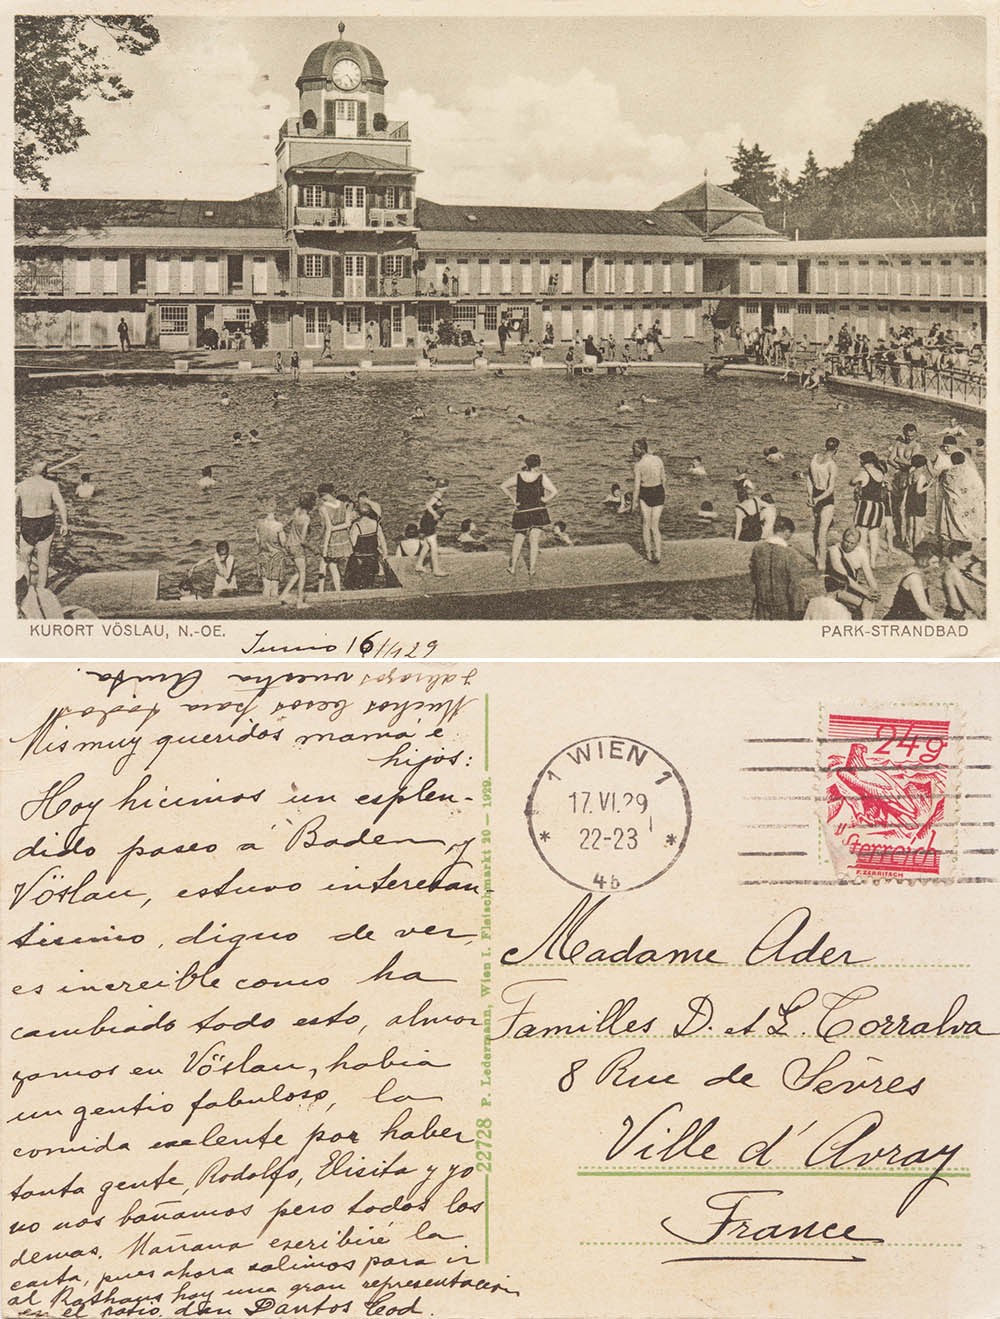 KURORT VÖSLAU, N.-OE.
PARK-STRANDBAD
Junio 16/1929
Mis muy queridos mamá é
hijos:
Hoy hicimos un esplen-
dido paseo á Baden, y
Vöslau, estuvo interesan
tisimo, digno de ver,
es increible como ha
cambiado todo esto, almor
zamos en Vöslau, habia
un gentio fabuloso, la
comida exelente por haber
tanta gente, Rodolfo, Elisita y yo
no nos bañamos pero todos los
demas. Mañana escribiré la
carta, pues ahora salimos para ir
al Rathaus hay una gran representacion
en el patio, dan Dantos Tod.
Muchos besos para todos
abrazos vuestra Anita.
22728 P. Ledermann, Wien I. Fleischmarkt 20 — 1929.
1 WIEN 1
17.VI.29
22-23
* *
4b
24g
Österreich
F. ZERRITSCH
Madame Ader
Familles D. et L. Corralva
8 Rue de Sèvres
Ville d'Avray
France